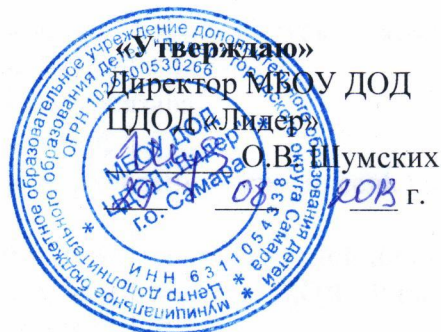 «Утверждаю»
Директор МБОУ ДОД
ЦДОД «Лидер»
О.В. Шумских
08 2013 г.
муниципальное бюджетное образовательное учреждение дополнительного образования детей
Центр дополнительного образования детей
городского округа Самара
ИНН 6311054338
МБОУ ДОД
ЦДОД «Лидер»
г.о. Самара